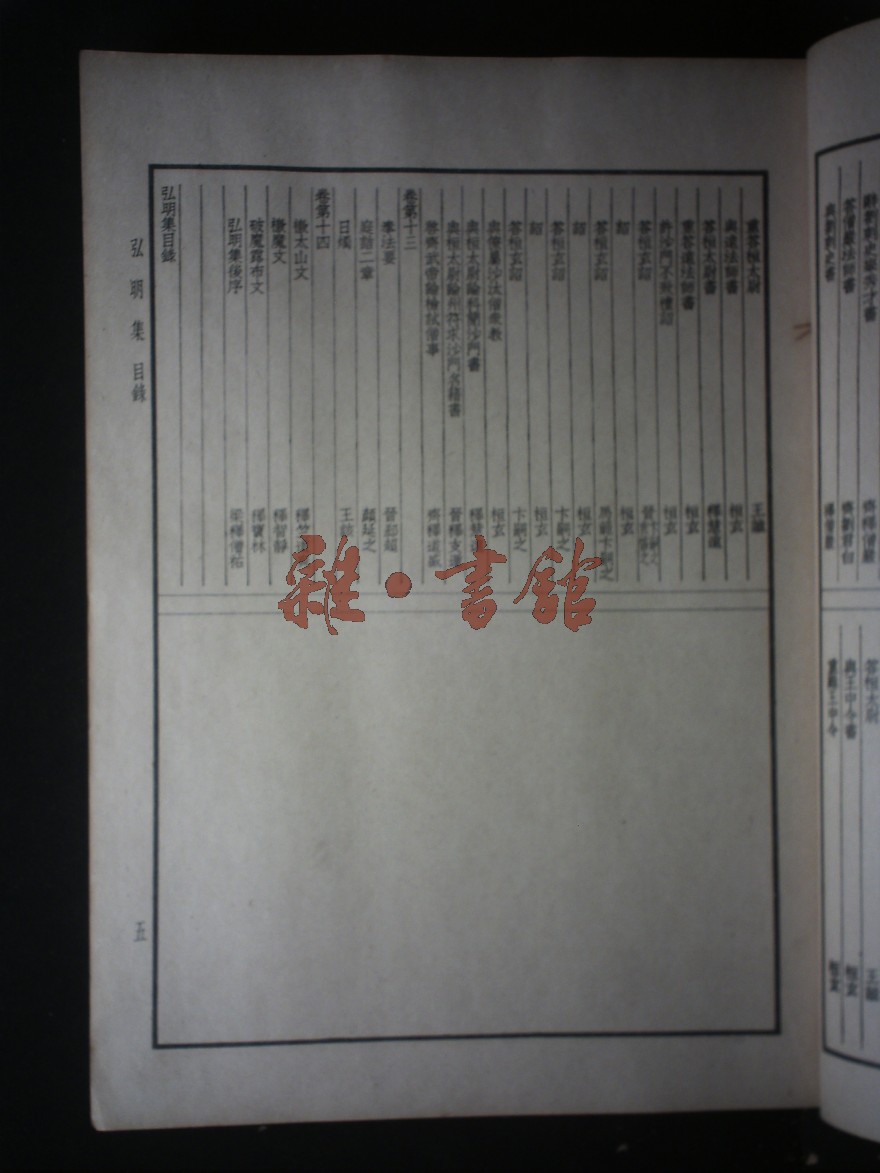 辭劉刺史舉秀才書 齊釋僧巖
答僧巖法師書 齊劉君白
與劉刺史書 釋僧巖
答桓太尉 王謐
與王中令書 桓玄
重難王中令 桓玄
重答桓太尉 王謐
與遠法師書 桓玄
答桓太尉書 釋慧遠
重答遠法師書 桓玄
許沙門不致禮詔 桓玄
答桓玄詔
詔 桓玄
答桓玄詔 馬範卞嗣之
詔 桓玄
答桓玄詔 卞嗣之
詔 桓玄
答桓玄詔 卞嗣之
與僚屬沙汰僧眾教 桓玄
與桓太尉論料簡沙門書 釋慧
與桓太尉論州符求沙門名籍書 晉釋支遁
啓齊武帝論檢試僧事 齊釋道盛
卷第十三
奉法要 晉郗超
庭誥二章 顏延之
日燭 王
卷第十四
檄太山文 釋竺道
檄魔文 釋智靜
破魔露布文 釋寶林
弘明集後序 梁釋僧祐
弘明集目錄
弘明集 目錄
五
雜·書館